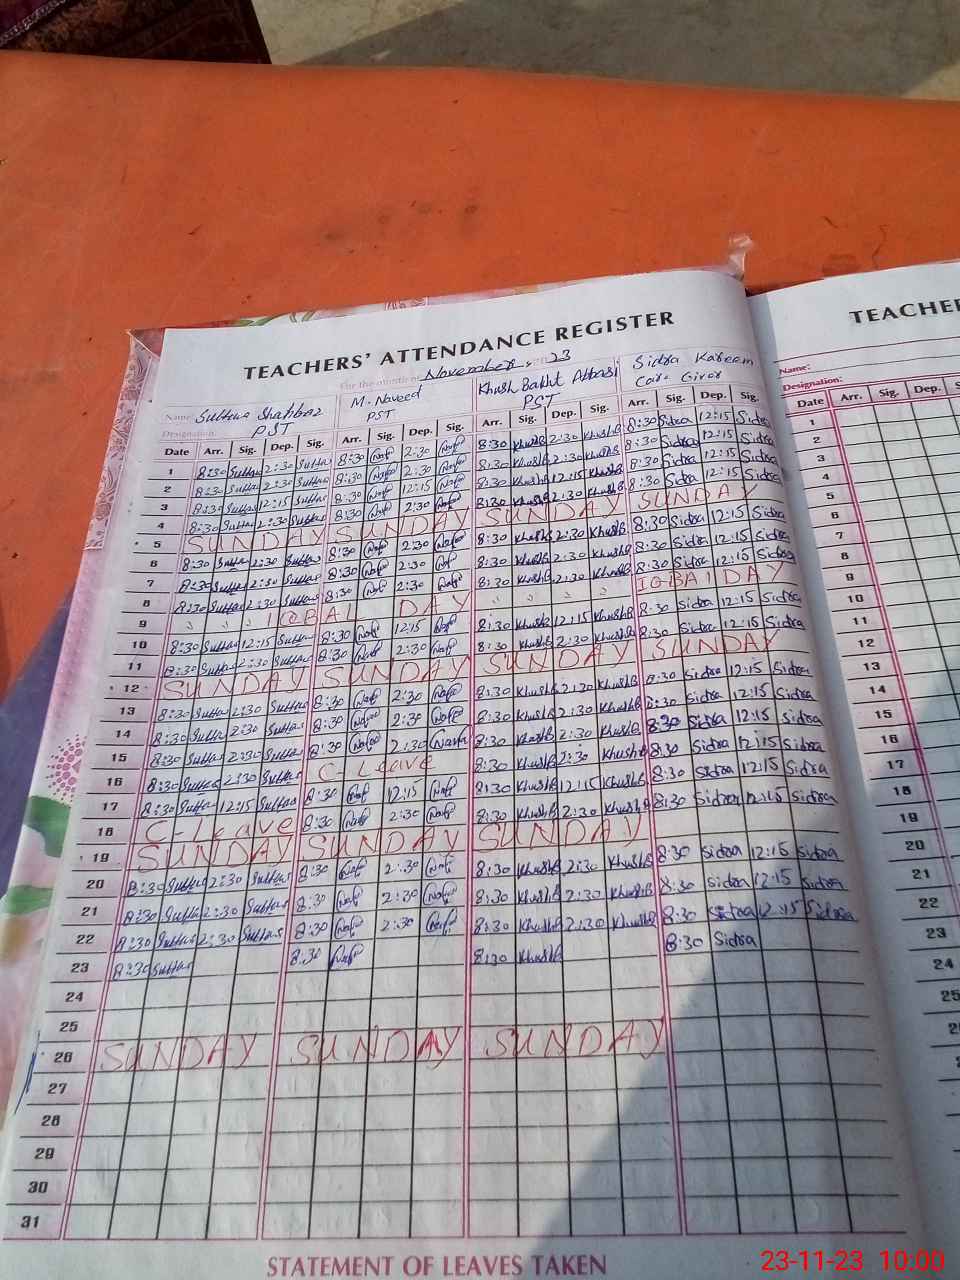 TEACHERS' ATTENDANCE REGISTER
For the month of November, 2023
Name: Sultana Shahbaz M. Naveed Khush Bakht Abbasi Sidra Kareem
Designation: PST PST PST Care Giver
Date Arr. Sig. Dep. Sig. Arr. Sig. Dep. Sig. Arr. Sig. Dep. Sig. Arr. Sig. Dep. Sig.
1 8:30 2:30 8:30 2:30 8:30 Khush B 2:30 Khush B 8:30 Sidra 12:15 Sidra
2 8:30 2:30 8:30 2:30 8:30 Khush B 2:30 Khush B 8:30 Sidra 12:15 Sidra
3 8:30 12:15 8:30 12:15 8:30 Khush B 12:15 Khush B 8:30 Sidra 12:15 Sidra
4 8:30 2:30 8:30 2:30 8:30 Khush B 2:30 Khush B 8:30 Sidra 12:15 Sidra
5 SUNDAY SUNDAY SUNDAY SUNDAY
6 8:30 2:30 8:30 2:30 8:30 Khush B 2:30 Khush B 8:30 Sidra 12:15 Sidra
7 8:30 2:30 8:30 2:30 8:30 Khush B 2:30 Khush B 8:30 Sidra 12:15 Sidra
8 8:30 2:30 8:30 2:30 8:30 Khush B 2:30 Khush B 8:30 Sidra 12:15 Sidra
9 IQBAL DAY IQBAL DAY
10 8:30 12:15 8:30 12:15 8:30 Khush B 12:15 Khush B 8:30 Sidra 12:15 Sidra
11 8:30 2:30 8:30 2:30 8:30 Khush B 2:30 Khush B 8:30 Sidra 12:15 Sidra
12 SUNDAY SUNDAY SUNDAY SUNDAY
13 8:30 2:30 8:30 2:30 8:30 Khush B 2:30 Khush B 8:30 Sidra 12:15 Sidra
14 8:30 2:30 8:30 2:30 8:30 Khush B 2:30 Khush B 8:30 Sidra 12:15 Sidra
15 8:30 2:30 8:30 2:30 8:30 Khush B 2:30 Khush B 8:30 Sidra 12:15 Sidra
16 8:30 2:30 C-Leave 8:30 Khush B 2:30 Khush B 8:30 Sidra 12:15 Sidra
17 8:30 12:15 8:30 12:15 8:30 Khush B 12:15 Khush B 8:30 Sidra 12:15 Sidra
18 C-Leave 8:30 2:30 8:30 Khush B 2:30 Khush B 8:30 Sidra 12:15 Sidra
19 SUNDAY SUNDAY SUNDAY
20 8:30 2:30 8:30 2:30 8:30 Khush B 2:30 Khush B 8:30 Sidra 12:15 Sidra
21 8:30 2:30 8:30 2:30 8:30 Khush B 2:30 Khush B 8:30 Sidra 12:15 Sidra
22 8:30 2:30 8:30 2:30 8:30 Khush B 2:30 Khush B 8:30 Sidra 12:15 Sidra
23 8:30 8:30 8:30 Khush B 8:30 Sidra
24
25
26 SUNDAY SUNDAY SUNDAY
27
28
29
30
31
STATEMENT OF LEAVES TAKEN
TEACHE
Name:
Designation:
Date Arr. Sig. Dep. S
1
2
3
4
5
6
7
8
9
10
11
12
13
14
15
16
17
18
19
20
21
22
23
24
25
26
23-11-23 10:00